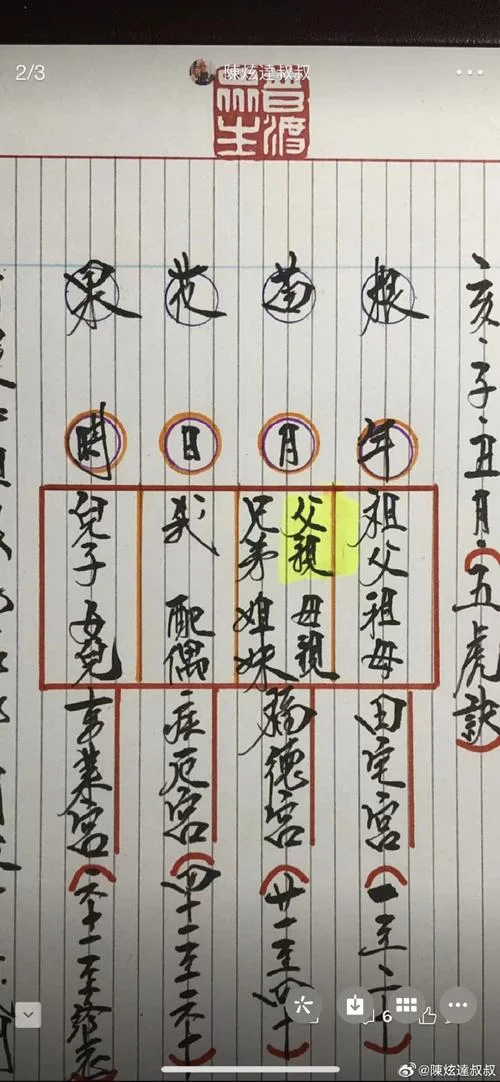 2/3
陳炫達叔叔
普渡
眾生
亥·子·丑月·(五虎訣)
根
年
祖父祖母
田宅宮(一至二十)
苗
月
父親 母親
兄弟 姐妹
福德宮(廿一至四十)
花
日
我 配偶
疾厄宮(四十一至六十)
果
時
兒子 女兒
事業宮(六十一至
6
@陳炫達叔叔